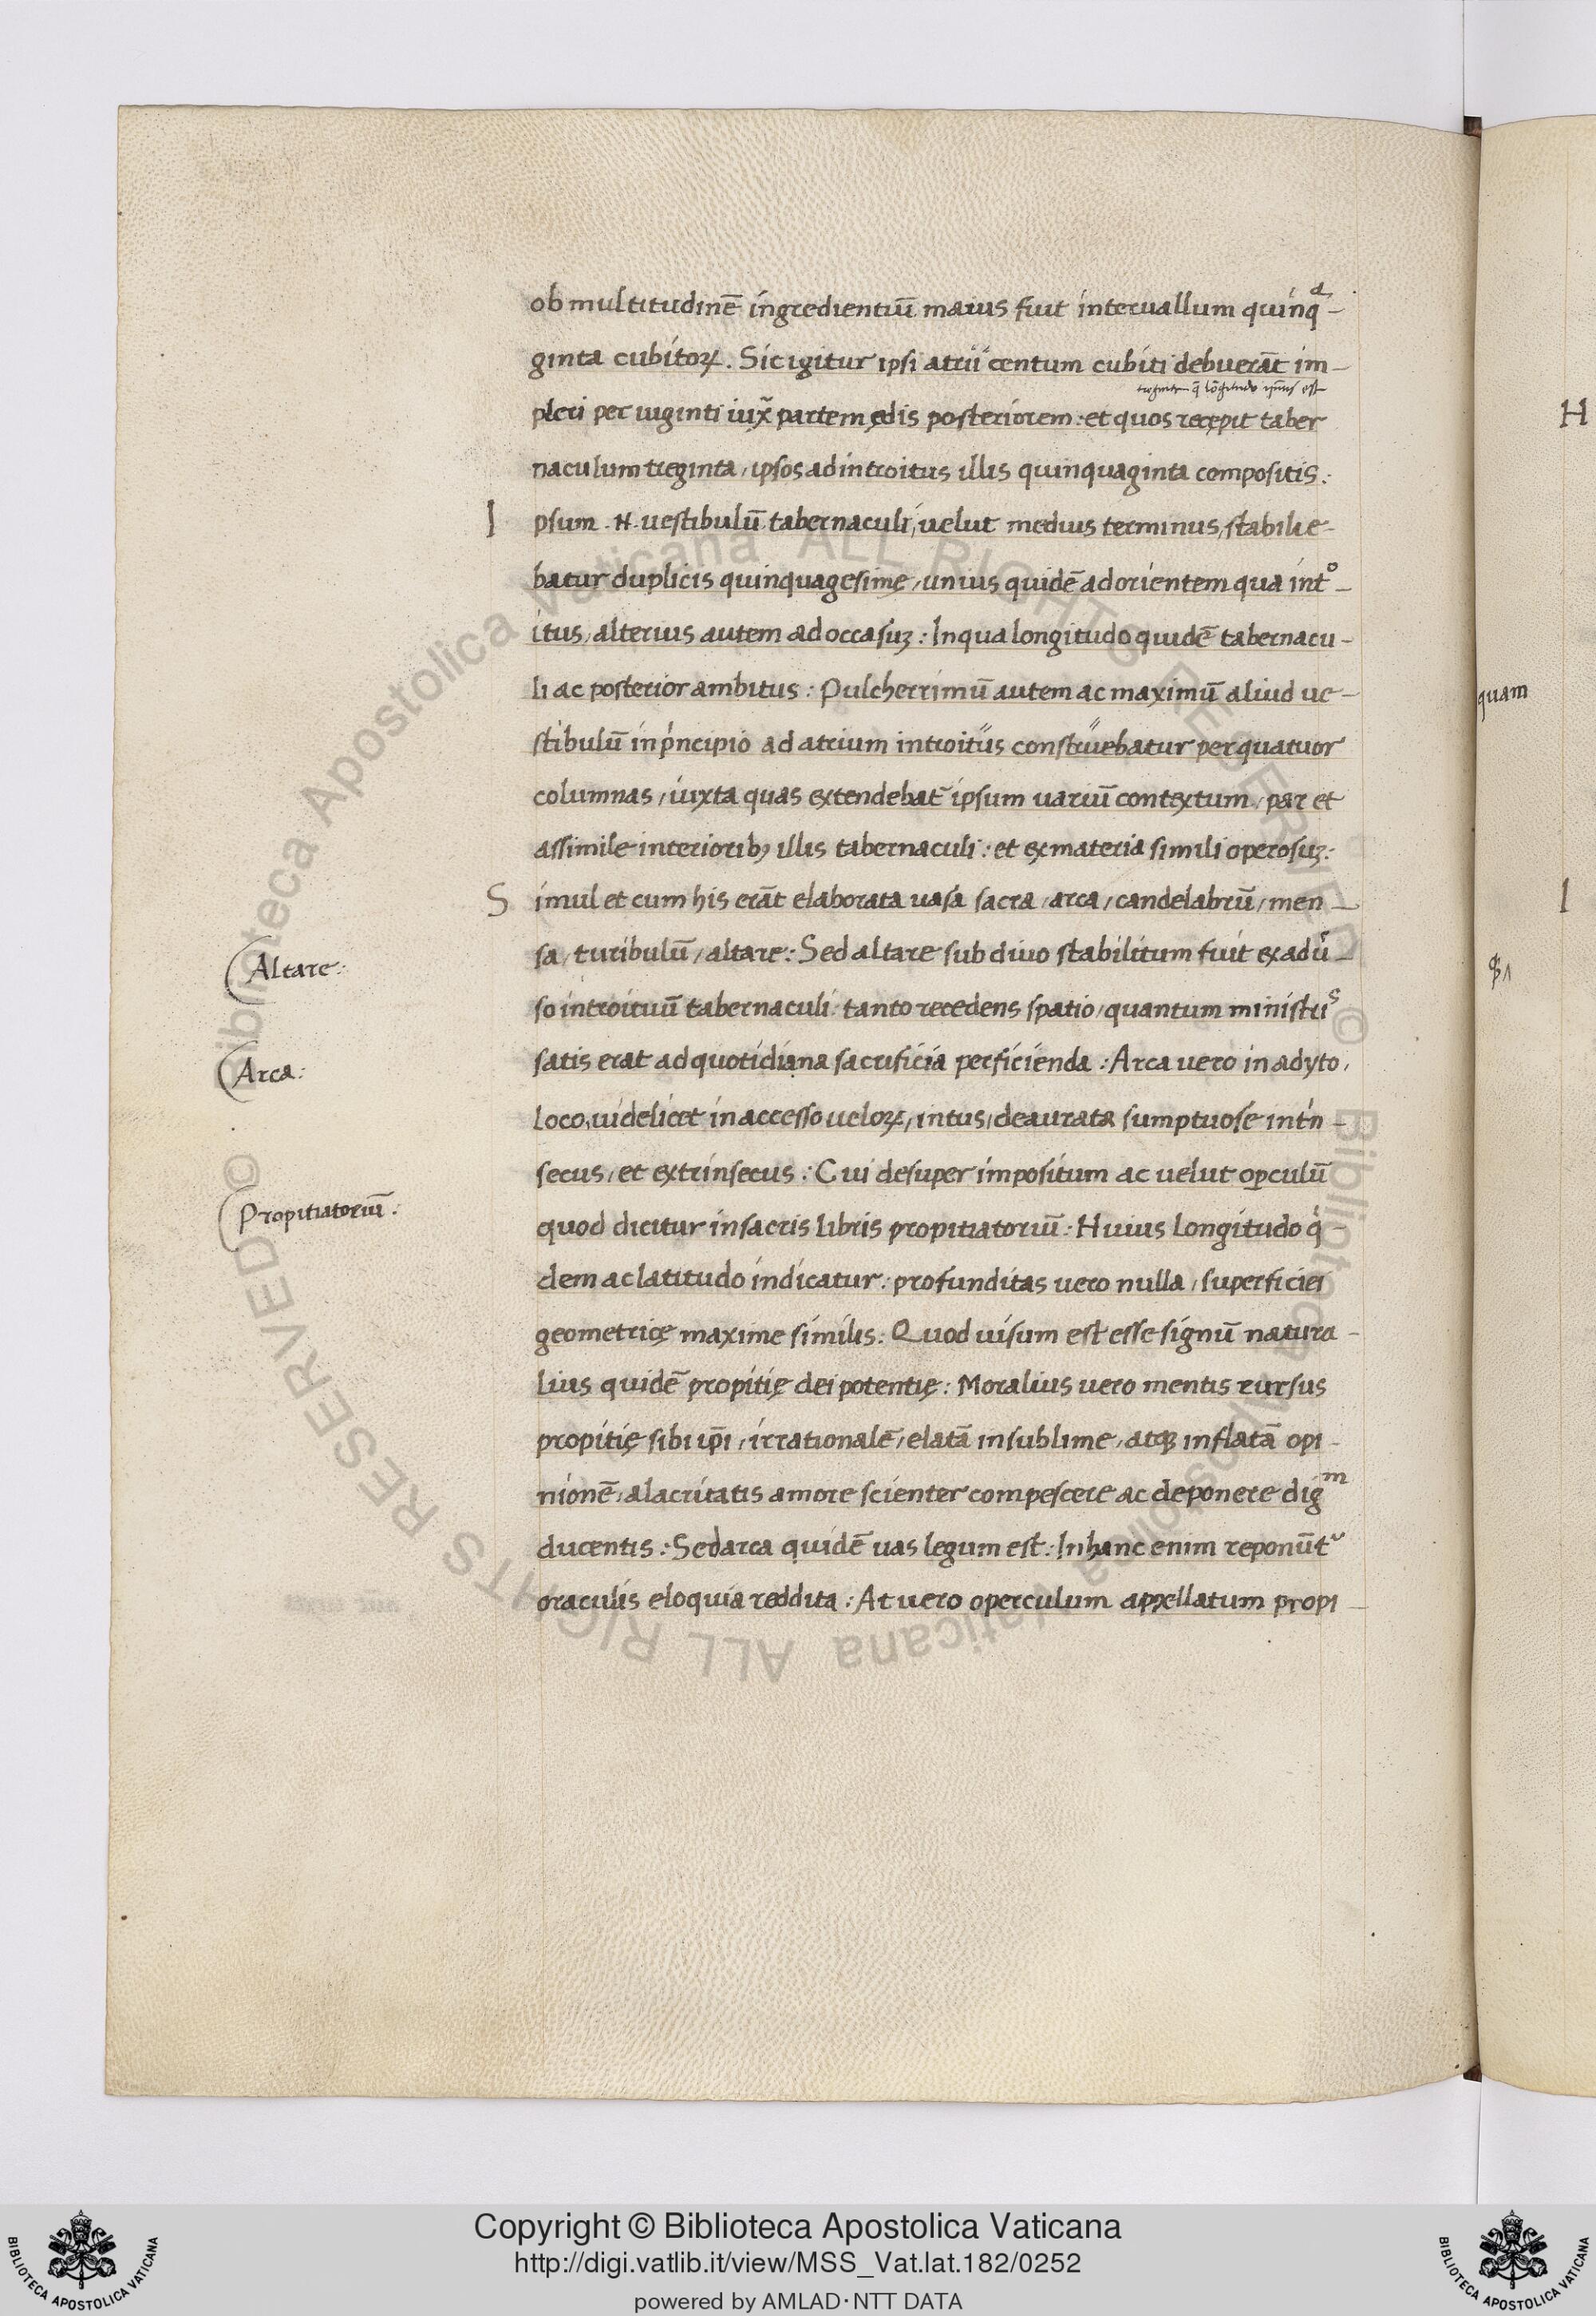 ob multitudinē ingredientiū maius fuit interuallum quinqᵃ-
ginta cubitoꝝ. Sic igitur ipsi atrii centum cubiti debuerāt im-
pleri per uiginti iuxᵃ partem ędis posteriorem: et quos recępit taber
naculum treginta, ipsos ad introitus illis quinquaginta compositis:
Ipsum .N. uestibulū tabernaculi, uelut medius terminus, stabilie-
batur duplicis quinquagesimę, unius quidē ad orientem qua intº-
itus, alterius autem ad occasuꝫ: In qua longitudo quidē tabernacu-
li ac posterior ambitus: Pulcherrimū autem ac maximū aliud ue-
stibulū in pͥncipio ad atrium introitus construebatur per quatuor
columnas, iuxta quas extendebat̄ ipsum uariū contextum, par et
assimile interioribꝫ illis tabernaculi: et ex materia simili operosuꝫ:
Simul et cum his erāt elaborata uasa sacra, arca, candelabrū, men-
Altare:
sa, turibulū, altare: Sed altare sub diuo stabilitum fuit ex adu͛-
so introituū tabernaculi: tanto recedens spatio, quantum ministriˢ
Arca:
satis erat ad quotidiana sacrificia perficienda: Arca uero in adyto,
loco, uidelicet inaccesso ueloꝝ, intus, deaurata sumptuose intͥn-
secus, et extrinsecus: Cui desuper impositum ac uelut oꝑculū
Propitiatoriū:
quod dicitur in sacris libris propitiatoriū: Huius longitudo qͥ-
dem ac latitudo indicatur: profunditas uero nulla, superficiei
geometricę maxime similis: Quod uisum est esse signū natura-
lius quidē propitię dei potentię: Moralius uero mentis rursus
propitię sibi ip̄i, irrationalē, elatā in sublime, atqꝫ inflatā opi-
nionē, alacritatis amore scienter compescere ac deponere digᵐ
ducentis: Sed arca quidē uas legum est: In hanc enim reponūtᵘ
oraculis eloquia reddita: At uero operculum apꝑellatum propi-
H
quam
I
Copyright © Biblioteca Apostolica Vaticana
http://digi.vatlib.it/view/MSS_Vat.lat.182/0252
powered by AMLAD·NTT DATA
BIBLIOTECA APOSTOLICA VATICANA
BIBLIOTECA APOSTOLICA VATICANA
© Biblioteca Apostolica Vaticana ALL RIGHTS RESERVED
© Biblioteca Apostolica Vaticana ALL RIGHTS RESERVED